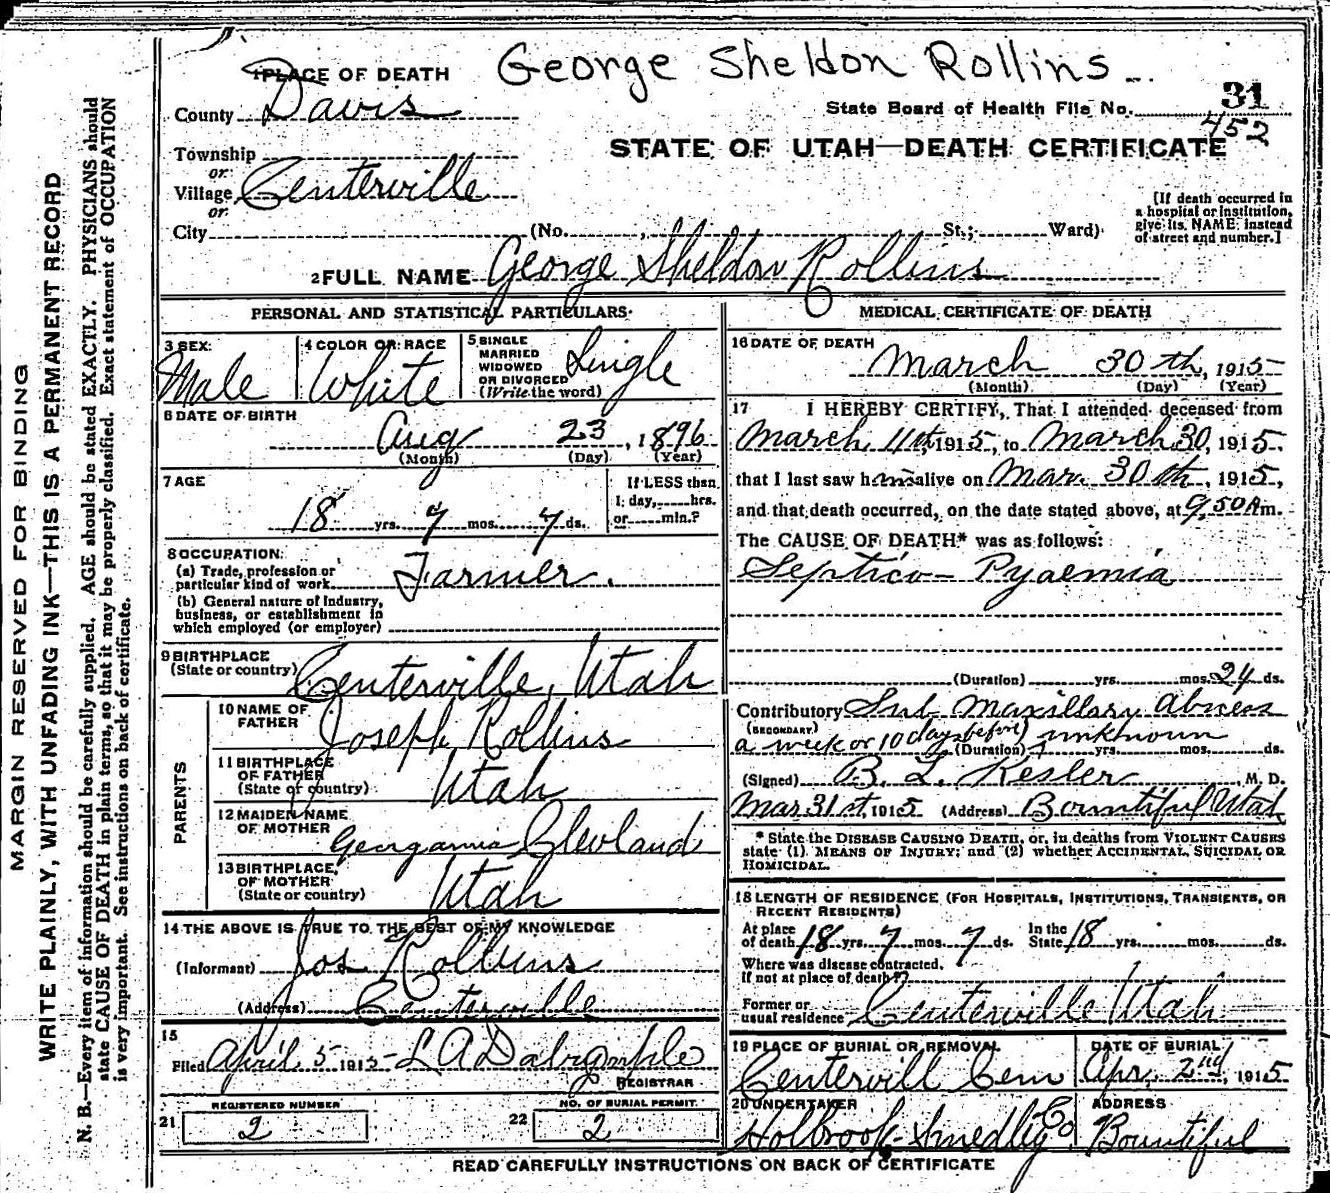 George Sheldon Rollins
1 PLACE OF DEATH
County Davis
State Board of Health File No. 31
452
STATE OF UTAH—DEATH CERTIFICATE
Township
or
Village Centerville
or
City (No. , St.; Ward)
[If death occurred in
a hospital or institution,
give its NAME instead
of street and number.]
2 FULL NAME George Sheldon Rollins
PERSONAL AND STATISTICAL PARTICULARS
3 SEX
Male
4 COLOR OR RACE
White
5 SINGLE
MARRIED
WIDOWED
OR DIVORCED
(Write the word)
Single
6 DATE OF BIRTH
Aug 23, 1896
(Month) (Day) (Year)
7 AGE
18 yrs. 7 mos. 7 ds.
If LESS than
1 day, hrs.
or min.?
8 OCCUPATION
(a) Trade, profession or
particular kind of work Farmer.
(b) General nature of industry,
business, or establishment in
which employed (or employer)
9 BIRTHPLACE
(State or country) Centerville, Utah
PARENTS
10 NAME OF
FATHER Joseph Rollins
11 BIRTHPLACE
OF FATHER
(State or country) Utah
12 MAIDEN NAME
OF MOTHER Cleveland
13 BIRTHPLACE
OF MOTHER
(State or country) Utah
14 THE ABOVE IS TRUE TO THE BEST OF MY KNOWLEDGE
(Informant) Jos Rollins
(Address) Centerville
15
Filed April 5 1915 L A Dalrymple
REGISTRAR
21 REGISTERED NUMBER
2
22 NO. OF BURIAL PERMIT
2
MEDICAL CERTIFICATE OF DEATH
16 DATE OF DEATH
March 30th, 1915
(Month) (Day) (Year)
17 I HEREBY CERTIFY, That I attended deceased from
March 11th, 1915, to March 30, 1915,
that I last saw him alive on Mar. 30th, 1915,
and that death occurred, on the date stated above, at 9.50 A m.
The CAUSE OF DEATH* was as follows:
Septico-Pyaemia
(Duration) yrs. mos. 24 ds.
Contributory Sub maxillary abscess
(SECONDARY)
a week or 10 days before) (Duration) unknown yrs. mos. ds.
(Signed) B. L. Kesler, M. D.
Mar 31st, 1915 (Address) Bountiful Utah
* State the DISEASE CAUSING DEATH, or, in deaths from VIOLENT CAUSES
state (1) MEANS OF INJURY; and (2) whether ACCIDENTAL, SUICIDAL OR
HOMICIDAL.
18 LENGTH OF RESIDENCE (FOR HOSPITALS, INSTITUTIONS, TRANSIENTS, OR
RECENT RESIDENTS)
At place
of death 18 yrs. 7 mos. 7 ds. In the
State 18 yrs. mos. ds.
Where was disease contracted,
If not at place of death?
Former or
usual residence Centerville Utah
19 PLACE OF BURIAL OR REMOVAL
Centervill Cem
DATE OF BURIAL
Apr. 2nd, 1915
20 UNDERTAKER
Holbrook-Smedley Co
ADDRESS
Bountiful
READ CAREFULLY INSTRUCTIONS ON BACK OF CERTIFICATE
MARGIN RESERVED FOR BINDING
WRITE PLAINLY, WITH UNFADING INK—THIS IS A PERMANENT RECORD
N. B.—Every item of information should be carefully supplied. AGE should be stated EXACTLY. PHYSICIANS should
state CAUSE OF DEATH in plain terms, so that it may be properly classified. Exact statement of OCCUPATION
is very important. See instructions on back of certificate.